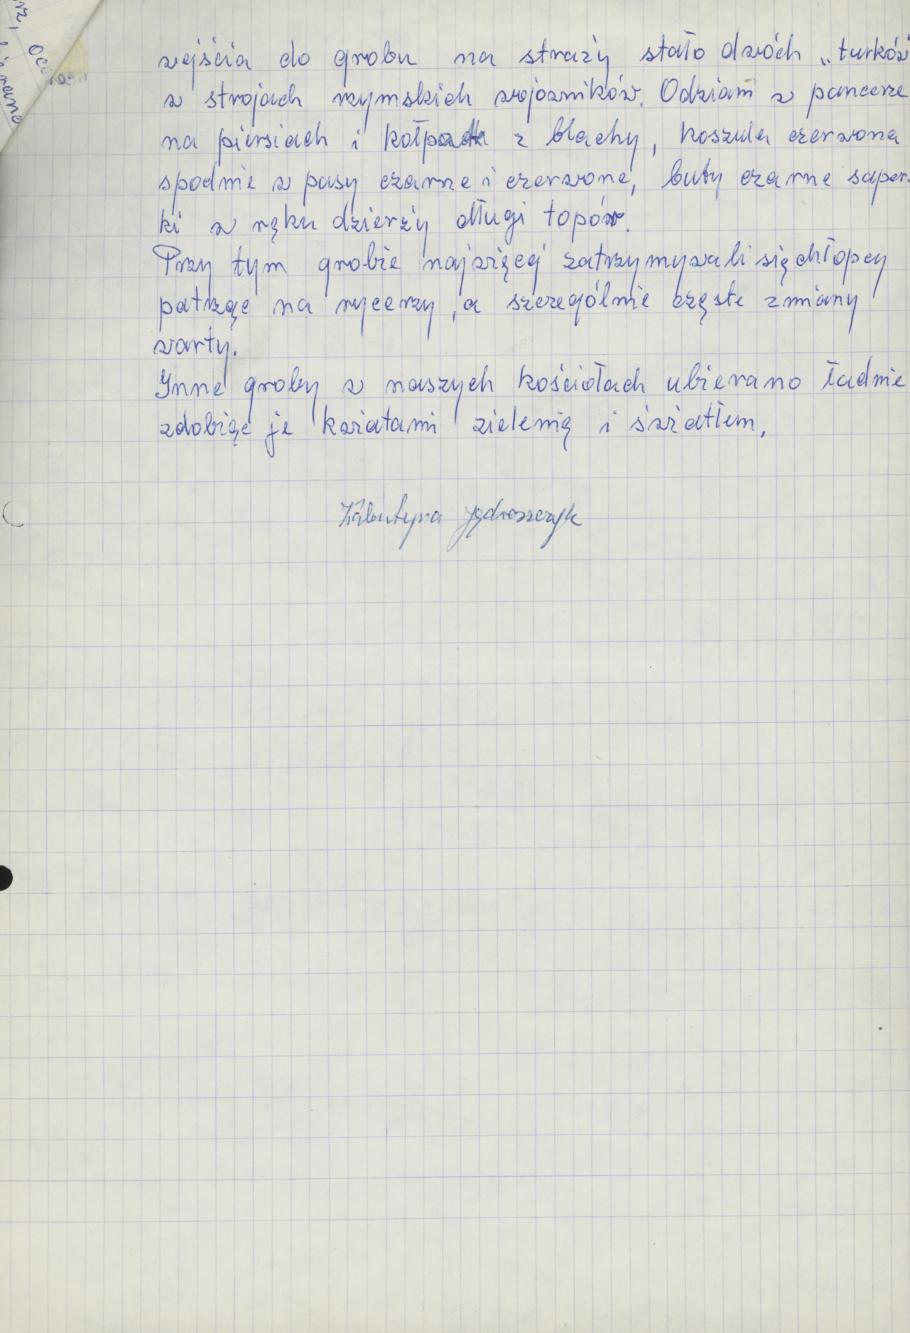 wejścia do grobu na straży stało dwóch „turków"
w strojach rzymskich wojowników. Odziani w pancerze
na piersiach i kołpaki z blachy, koszula czerwona
spodnie w pasy czarne i czerwone, buty czarne saper-
ki w ręku dzierży długi topór.
Przy tym grobie najwięcej zatrzymywali się chłopcy
patrząc na rycerzy, a szczególnie częste zmiany
warty.
Inne groby w naszych kościołach ubierano ładnie
zdobiąc je kwiatami zielenią i światłem.
Jędraszczyk